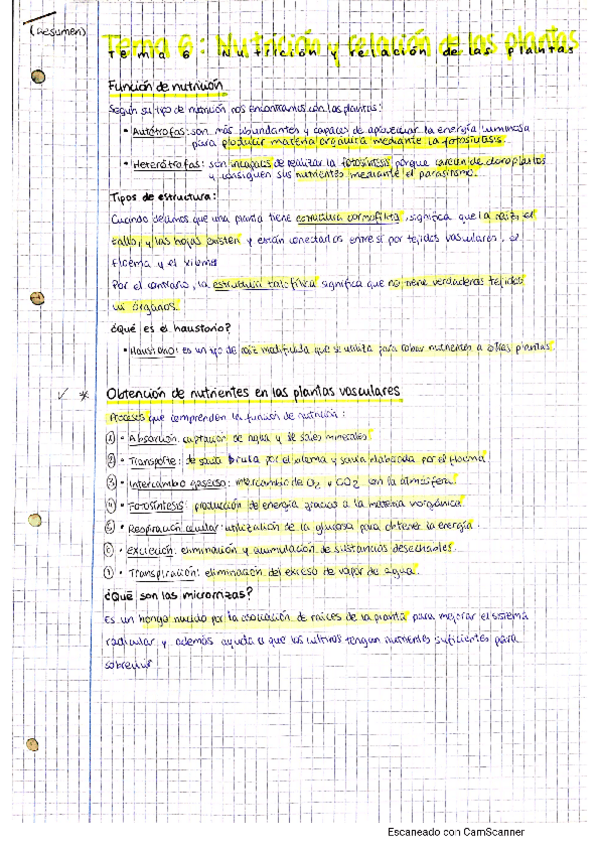 (Resumen)
Tema 6: Nutrición y relación de las plantas
Función de nutrición
Según su tipo de nutrición nos encontramos con las plantas:
• Autótrofas: son más abundantes y capaces de aprovechar la energía luminosa
para producir materia orgánica mediante la fotosíntesis.
• Heterótrofas: son incapaces de realizar la fotosíntesis porque carecen de cloroplastos
y consiguen sus nutrientes mediante el parasitismo.
Tipos de estructura:
Cuando decimos que una planta tiene estructura cormofítica, significa que la raíz, el
tallo, y las hojas existen y están conectados entre sí por tejidos vasculares, el
floema y el xilema
Por el contrario, la estructura talofítica significa que no tiene verdaderos tejidos
ni órganos.
¿Qué es el haustorio?
• Haustorio: es un tipo de raíz modificada que se utiliza para robar nutrientes a otras plantas.
✓ * Obtención de nutrientes en las plantas vasculares
Procesos que comprenden la función de nutrición:
① • Absorción: captación de agua y de sales minerales
② • Transporte: de savia bruta por el xilema y savia elaborada por el floema
③ • Intercambio gaseoso: intercambio de O2 y CO2 con la atmósfera.
④ • Fotosíntesis: producción de energía gracias a la materia inorgánica.
⑤ • Respiración celular: utilización de la glucosa para obtener la energía.
⑥ • Excreción: eliminación y acumulación de sustancias desechables.
⑦ • Transpiración: eliminación del exceso de vapor de agua.
¿Qué son las micorrizas?
Es un hongo nacido por la asociación de raíces de la planta para mejorar el sistema
radicular y además ayuda a que los cultivos tengan nutrientes suficientes para
sobrevivir
Escaneado con CamScanner